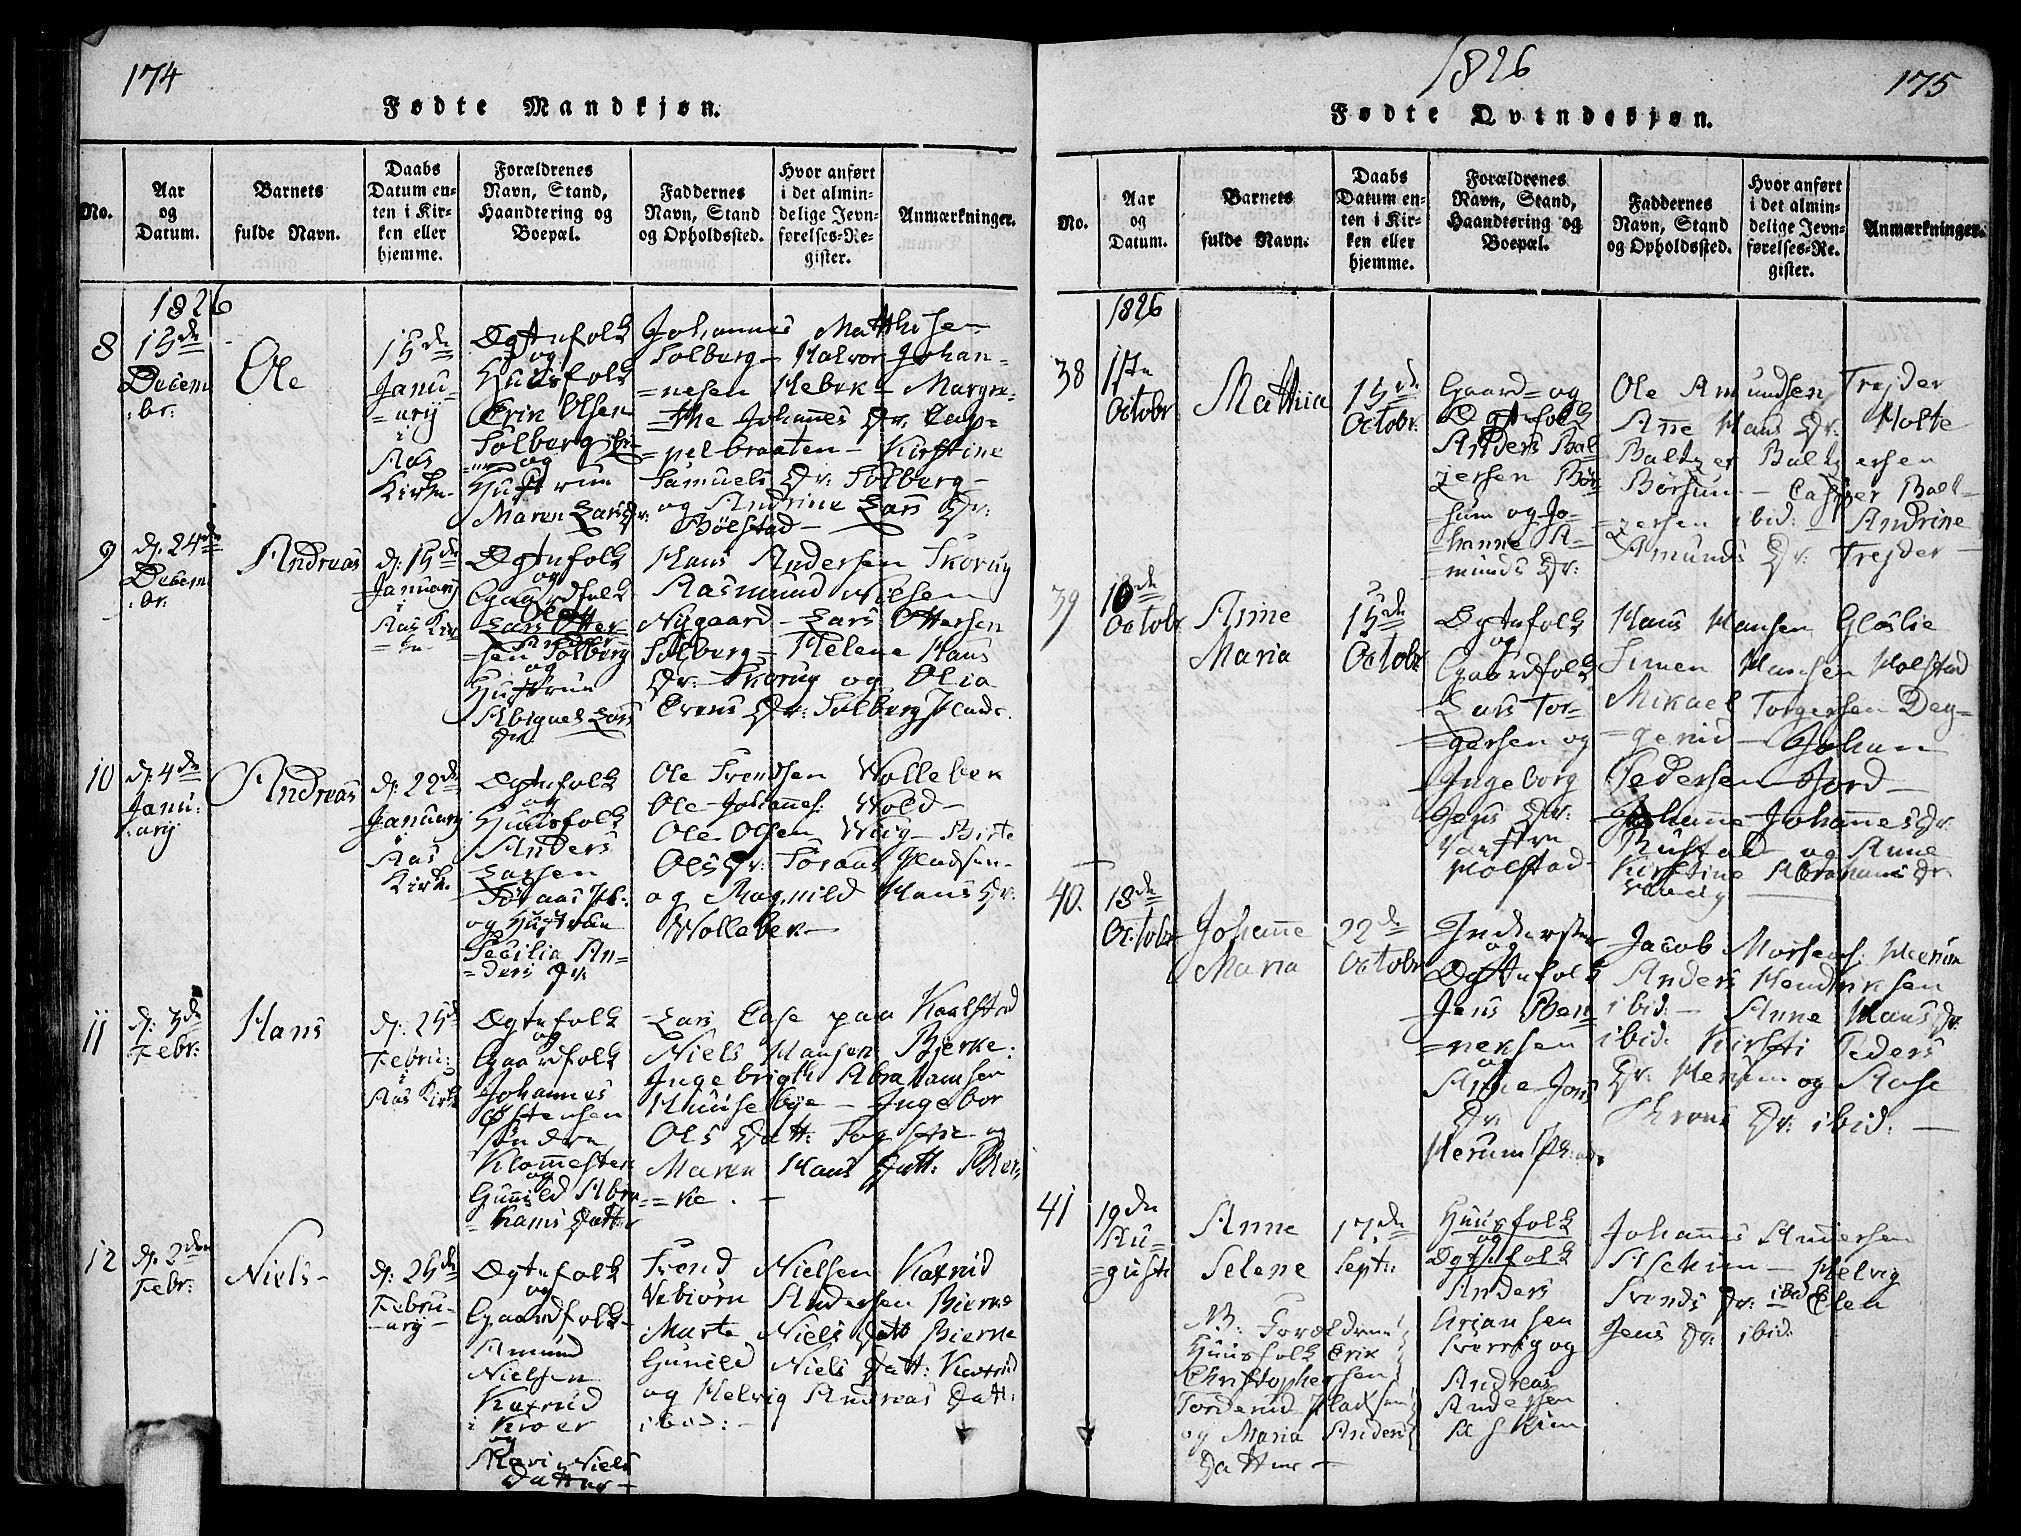 174
Fødte Mandkjøn.
No.
Aar
og
Datum.
Barnets
fulde Navn.
Daabs
Datum en-
ten i Kir-
ken eller
hjemme.
Forældrenes
Navn, Stand,
Haandtering og
Boepæl.
Faddernes
Navn, Stand
og Opholdssted.
Hvor anført
i det almin-
delige Jevn-
førelses-Re-
gister.
Anmærkninger.
1826
8
15de
Decem
:br:
Ole
15de
Janu-
=arij
i
Aas
Kirke.
Ægtefolk
og
Huusfolk
Erik Olsen
Solberg
og
Hustrue
Maren Lars Dr:
Johannes Matthisen
Solberg - Halvor Johan-
=nesen Hebek - Margre-
=the Johannes Dr. Cap-
=pelbraaten - Kirstine
Samuels Dr: Solberg -
og Andrine Lars Dr:
Bölstad -
9
d. 24de
Decem
:br:
Andreas
d: 15de
Januarij
i
Aas Kir
=ke
Ægtefolk
og
Gaardfolk
Lars Otter
=sen Solberg
og
Hustrue
Abiguel Lars
Dr
Hans Andersen Skorug
Rasmund Nilsen
Nygaard - Lars Ottersen
Solberg - Helene Hans
Dr: Skorug og Olia
Evens Dr: Solberg Plads.
10
d. 4de
Janu:
:arij
Andreas
d: 22de
Januarij
i
Aas
Kirk.
Ægtefolk
og
Huusfolk
Anders
Larsen
Toraas Pl:
og Hustrue
Cecilia An-
=ders Dr:
Ole Svendsen Wollebek
Ole Johannes: Wold -
Ole Olsen Wiig - Birte
Ols Dr: Toraas Pladsen -
og Ragnild Hans Dr:
Wollebek -
11
d: 3de
Febr:
Hans
d: 25de
Febru:
i
Aas Kirk
Ægtefolk
og
Gaardfolk
Johannes
Östensen
Söndre
Klommesten
og
Gunild Abra
=hams Datter
Lars Case paa Kaalstad
Niels Hansen Bjerke:
Ingebrigth Abrahamsen
Huusebye - Ingebor
Ols Datt: Togstie og
Maren Hans Datt: Bier
=ke. -
12
d: 2den
Febr:
Niels -
d: 26de
Febru-
=arij -
Ægtefolk
og
Gaardfolk -
Amund
Nielsen
Kaxrud
i Kroer
og
Mari Niels
Datter -
Svend Nielsen Kaxrud
Vebiörn Andersen Bierke
Marte Niels Datt Bierke
Gunild Niels Datt: Kaxrud
og Helvig Andreas Datt:
ibid: -
1826
175
Fødte Qvindekjøn.
No.
Aar
og
Datum.
Barnets
fulde Navn.
Daabs
Datum en-
ten i Kir-
ken eller
hjemme.
Forældrenes
Navn, Stand,
Haandtering og
Boepæl.
Faddernes
Navn, Stand
og Opholdssted.
Hvor anført
i det almin-
delige Jevn-
førelses-Re-
gister.
Anmærkninger.
1826
38
1ste
Octobr
Mathia
15de
Octobr:
Gaard= og
Ægtefolk
Anders Bal
zersen Bör
=sum og Jo-
=hanne A-
=munds Dr:
Ole Amundsen Trejder
Anne Hans Dr: Holte
Baltzer Baltzersen
Börsum - Casper Balt-
=zersen ibid: Andrine
Amunds Dr: Trejder -
39
10de
Octobr
Anne
Maria
15de
Octobr
Ægtefolk
og
Gaardfolk
Lars Tor-
=gersen og
Ingeborg
Jens Dr:
Holstad -
Hans Hansen Gloslie
Simen Hansen Holstad
Mikael Torgersen Dag-
Johan
Pedersen Fjord -
Johanne Johannes Dr:
Rustad - og Anne
Kirstine Abrahams Dr:
40.
18de
Octobr
Johanne
Maria
22de
Octobr
Inderster
og
Ægtefolk
Jens Ben
=neksen
og
Anne Jons
Dr:
Herum
Jacob Mortens: Herum
Anders Hendriksen
ibid: - Anne Hans Dr:
ibid: Kirsti Peders
Dr: Herum og Aase
Throns Dr: ibid: -
41
19de
Au-
=gusti
Anne
Selene
17de
Septr:
Huusfolk
og
Ægtefolk
Anders
Arjansen
Sverrig og
Andreas
Andersen
Askim
Johannes Andersen
Askim - Helvig
Svends Dr: ibid Elen
Jens Dr: ibid:
N.B: Forældrene
Huusfolk Erik
Christophersen
Torderud Pladsen
og Maria Anders
Datter -